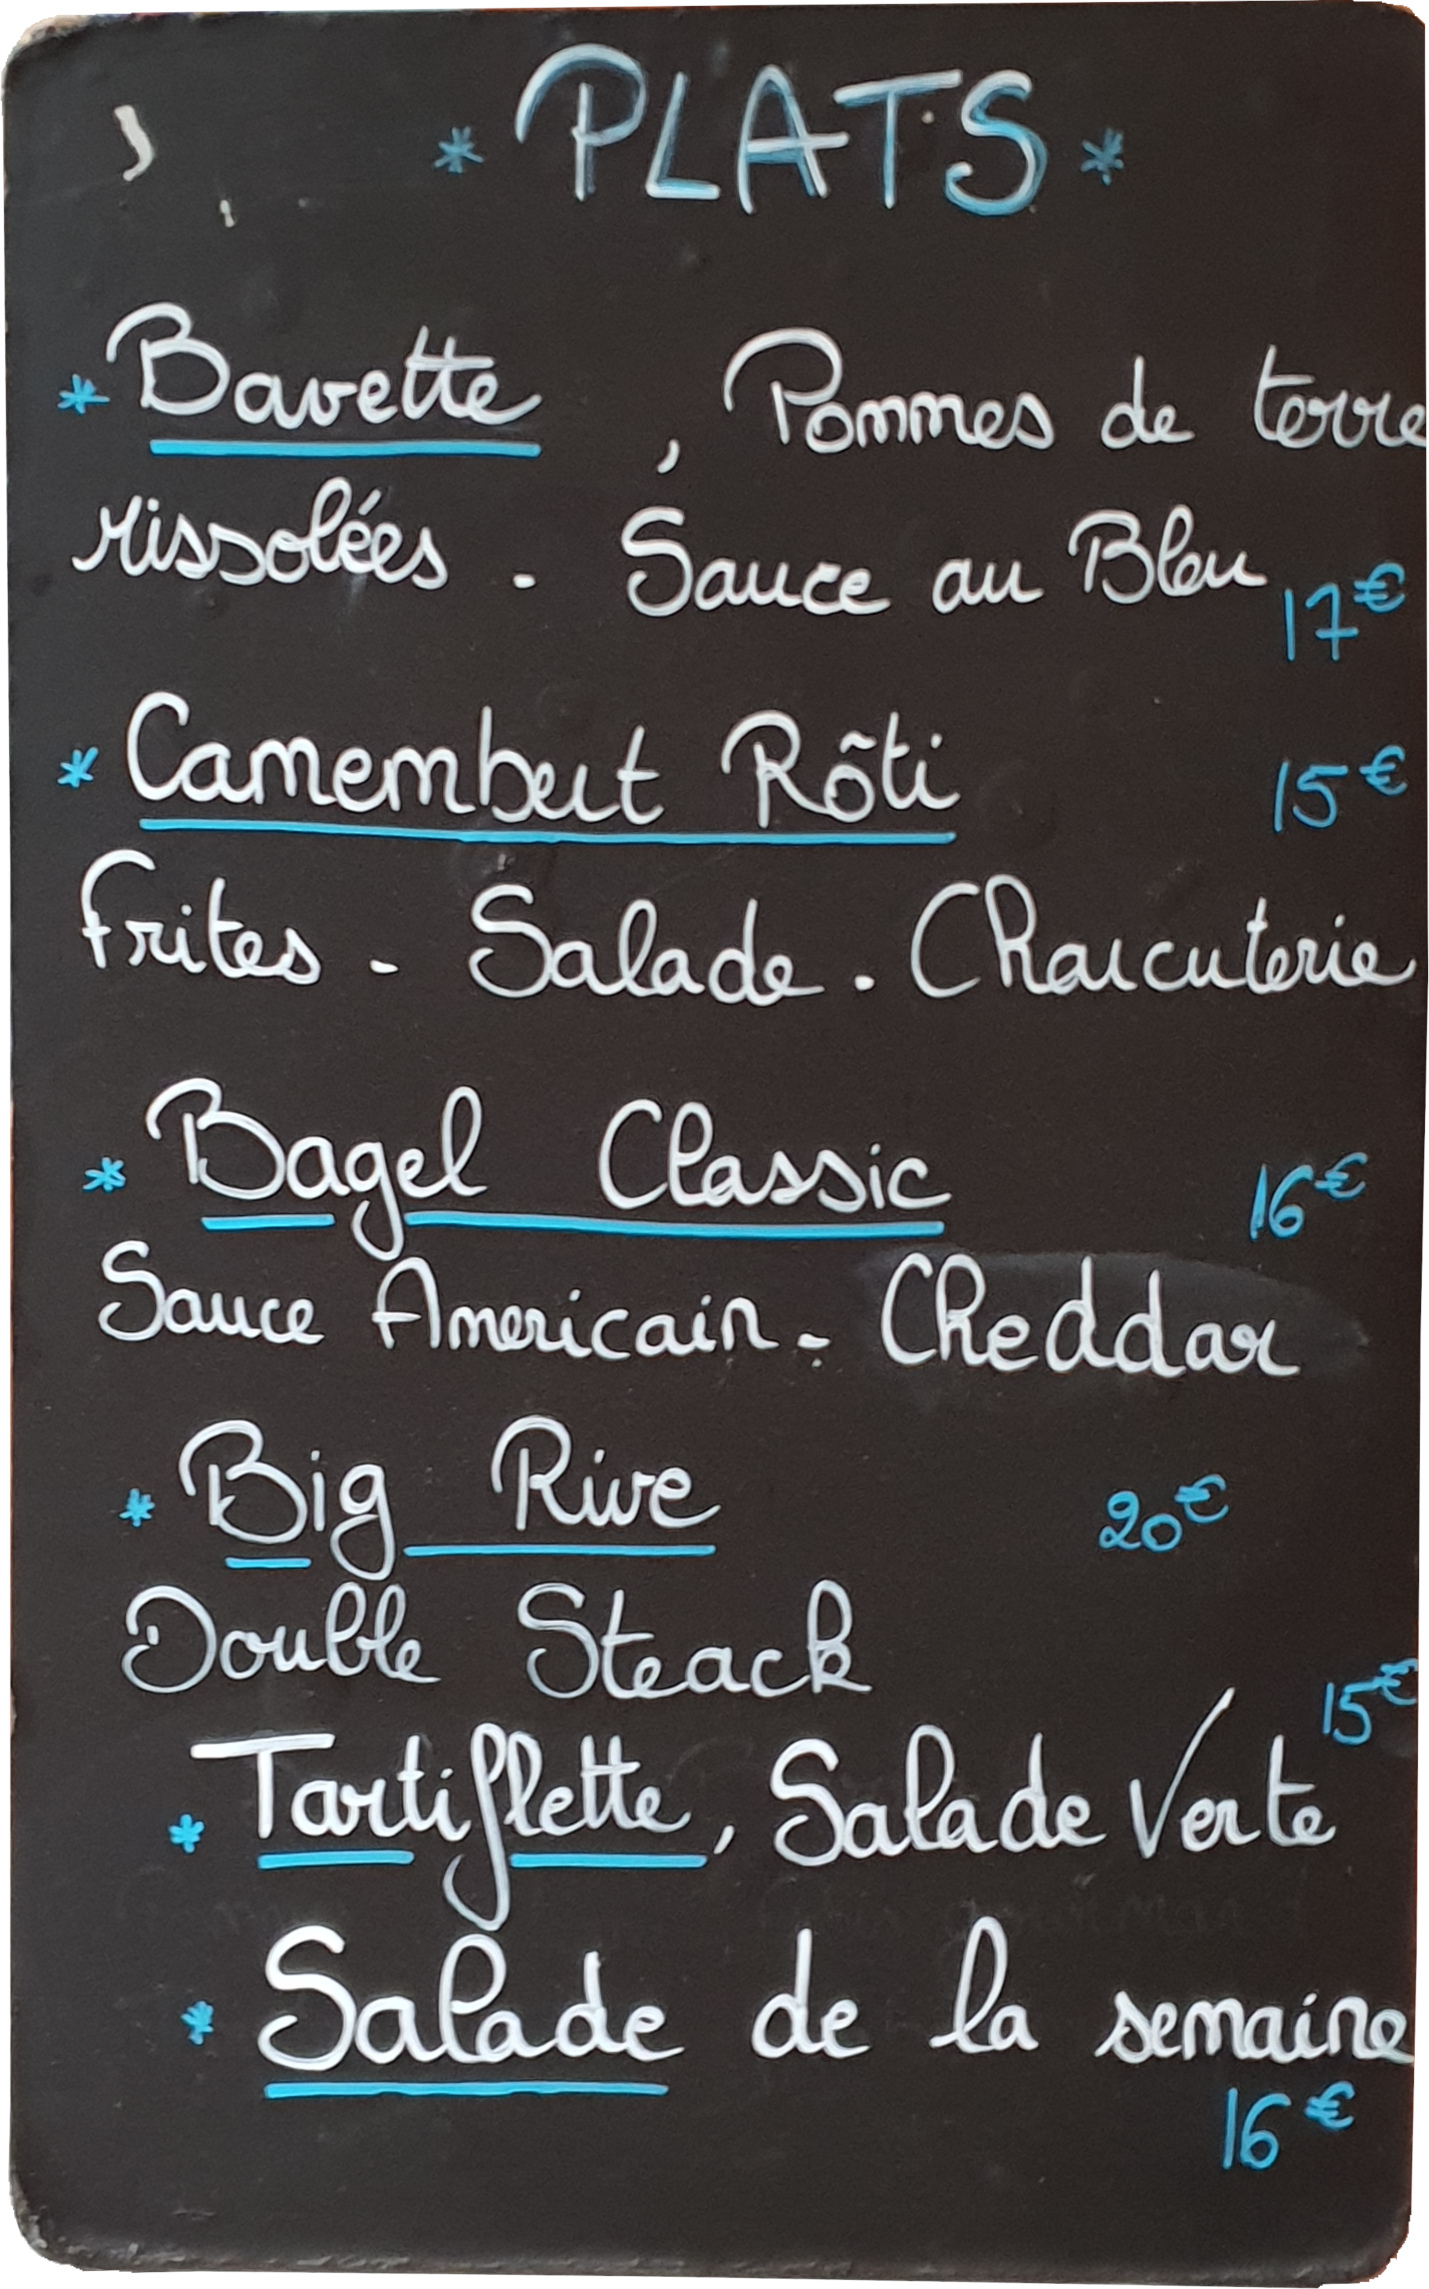 * PLATS *
* Bavette , Pommes de terre
rissolées - Sauce au Bleu 17€
* Camembert Rôti 15€
Frites - Salade - Charcuterie
* Bagel Classic 16€
Sauce Americain - Cheddar
* Big Rive 20€
Double Steack
15€
* Tartiflette, Salade Verte
* Salade de la semaine
16€